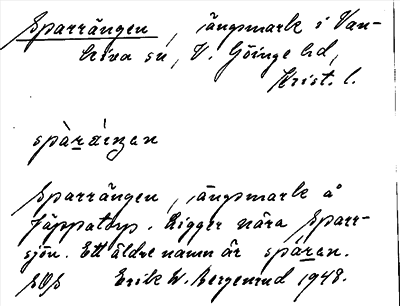 Sparrängen, ängsmark i Van-
kiva sn, V. Göinge hd,
Krist. l.
spàráŋẹn
Sparrängen, ängsmark å
Jäppatorp. Ligger nära Sparr-
sjön. Ett äldre namn är spáran.
Erik W. Bergenrud 1948.